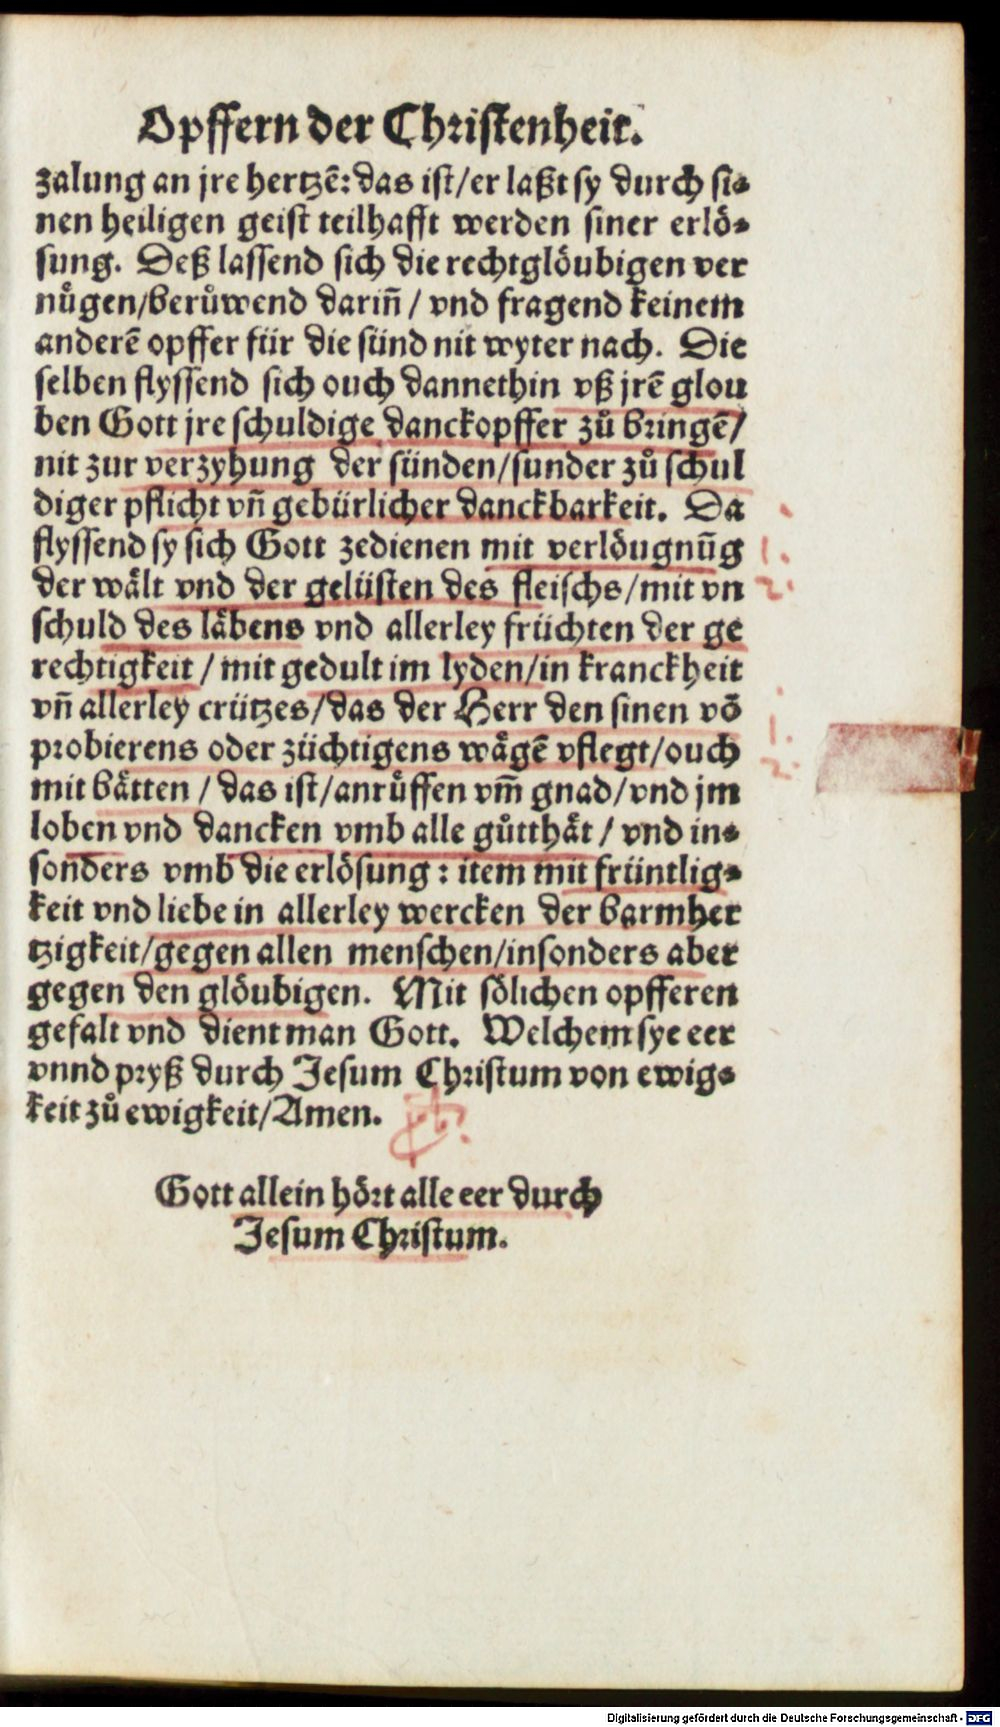 Opffern der Christenheit.
zalung an jre hertzẽ: das ist/er laßt sy durch si-
nen heiligen geist teilhafft werden siner erlö-
sung. Deß lassend sich die rechtglöubigen ver
nuͤgen/beruͦwend dariñ / vnd fragend keinem
anderẽ opffer für die sünd nit wyter nach. Die
selben flyssend sich ouch dannethin vß jrẽ glou
ben Gott jre schuldige danckopffer zuͦ bringẽ/
nit zur verzyhung der sünden/sunder zuͦ schul
diger pflicht vñ gebürlicher danckbarkeit. Da
flyssend sy sich Gott zedienen mit verlöugnũg
der wält vnd der gelüsten des fleischs/mit vn
schuld des läbens vnd allerley früchten der ge
rechtigkeit / mit gedult im lyden/in kranckheit
vñ allerley crützes/das der Herr den sinen võ
probierens oder züchtigens wägẽ vflegt/ouch
mit bätten / das ist/anruͤffen vm̃ gnad/vnd jm
loben vnd dancken vmb alle guͦtthät / vnd in-
sonders vmb die erlösung: item mit früntlig-
keit vnd liebe in allerley wercken der barmher
tzigkeit/gegen allen menschen/insonders aber
gegen den glöubigen. Mit sölichen opfferen
gefalt vnd dient man Gott. Welchem sye eer
vnnd pryß durch Jesum Christum von ewig-
keit zuͦ ewigkeit/Amen.
Gott allein hört alle eer durch
Jesum Christum.
1.
2.
1.
2.
Digitalisierung gefördert durch die Deutsche Forschungsgemeinschaft - DFG